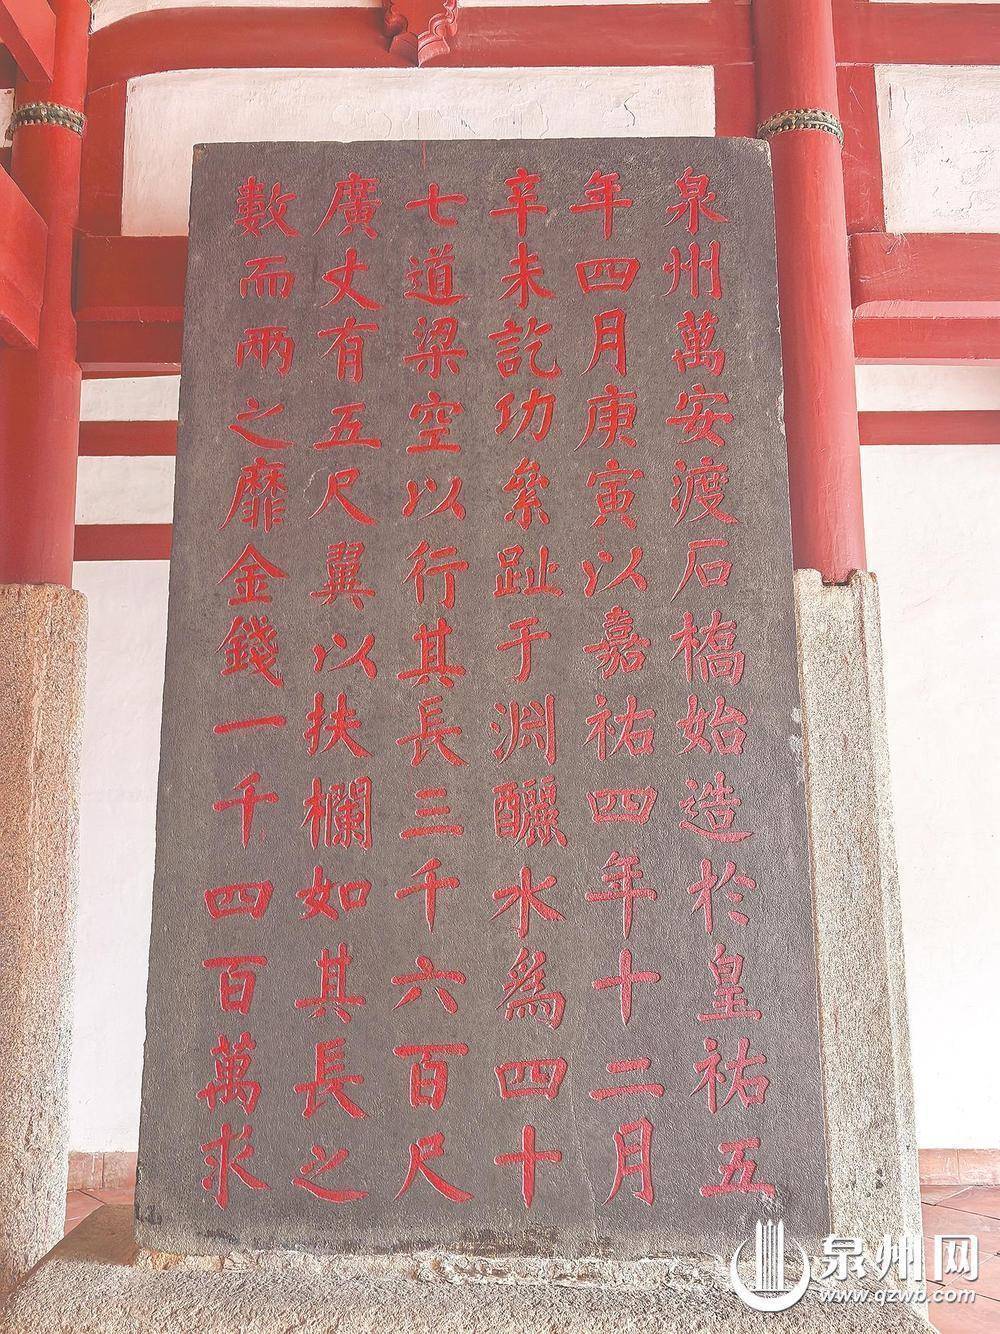 泉州萬安渡石橋始造於皇祐五
年四月庚寅以嘉祐四年十二月
辛未訖功絫趾于渊釃水為四十
七道梁空以行其長三千六百尺
廣丈有五尺翼以扶欄如其長之
數而兩之靡金錢一千四百萬求
泉州网
www.qzwb.com